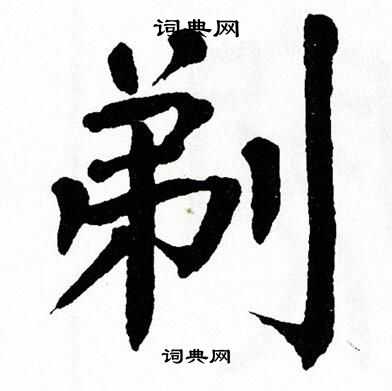 词典网
剃
词典网